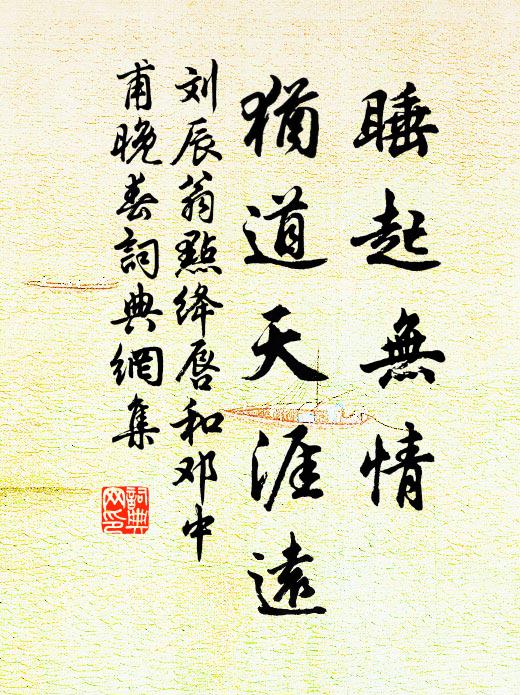 睡起無情
猶道天涯遠
刘辰翁點绛唇和邓中
甫晚春詞典網集
詞典網印